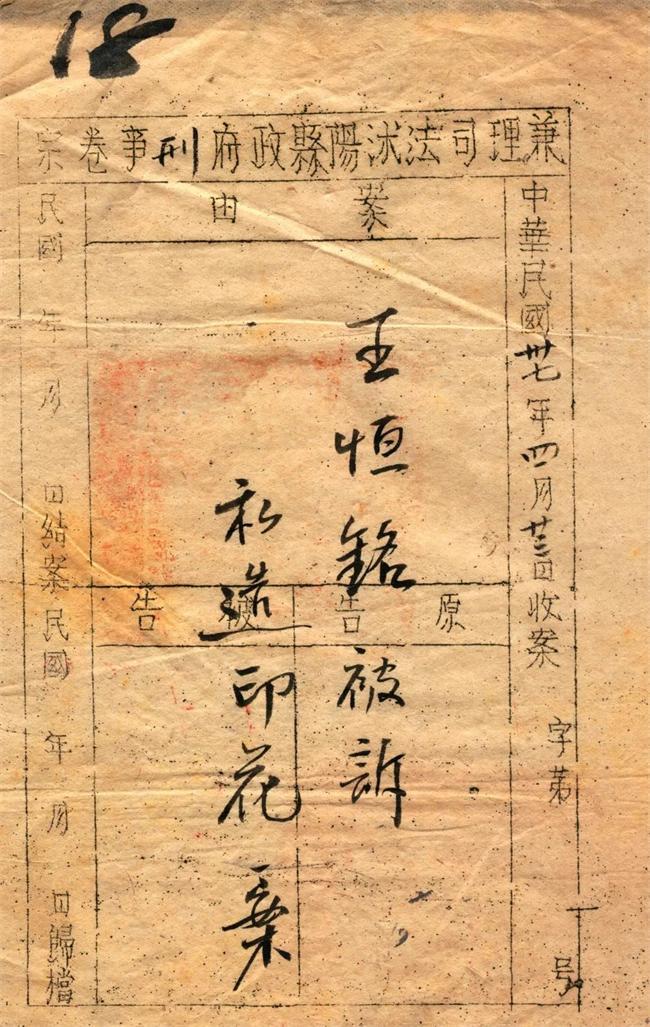 18
兼理司法沭陽縣政府刑事卷宗
中華民國卅七年四月廿三日收案 字第 号
案由
王恒銘被訴
私造印花案
原告
被告
民國 年 月 日結案民國 年 月 日歸檔